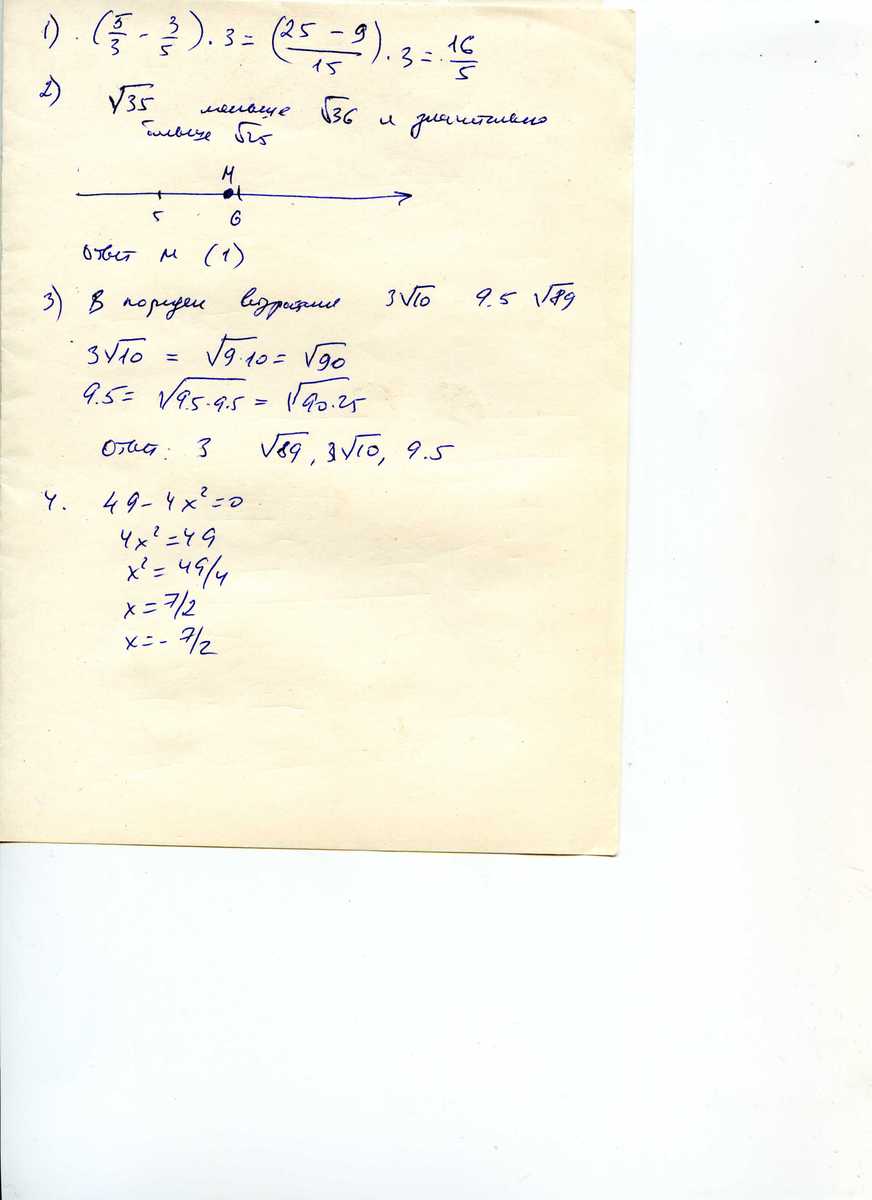 1) · (5/3 - 3/5) · 3 = (25 - 9 / 15) · 3 = 16/5
2)
√35 меньше √36 и значительно
больше √25
M
5 6
Ответ M (1)
3) В порядке 3√10 9.5 √89
3√10 = √9·10 = √90
9.5 = √9.5·9.5 = √90.25
Ответ: 3 √89, 3√10, 9.5
4. 49 - 4x² = 0
4x² = 49
x² = 49/4
x = 7/2
x = - 7/2